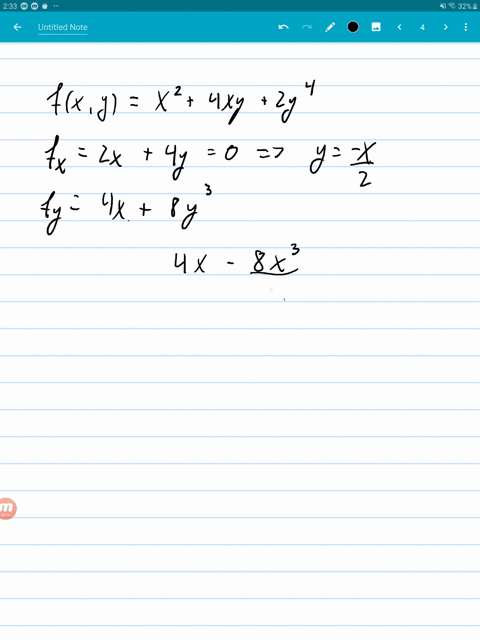 2:33 32%
Untitled Note 4
f(x,y) = x² + 4xy + 2y⁴
fx = 2x + 4y = 0 => y = -x/2
fy = 4x + 8y³
4x - 8x³